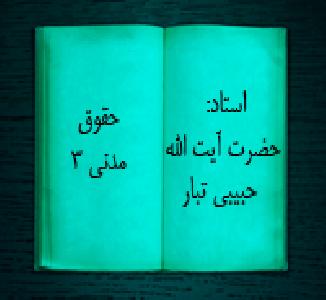 استاد:
حضرت آیت الله
حبیبی تبار
حقوق
مدنی ۳